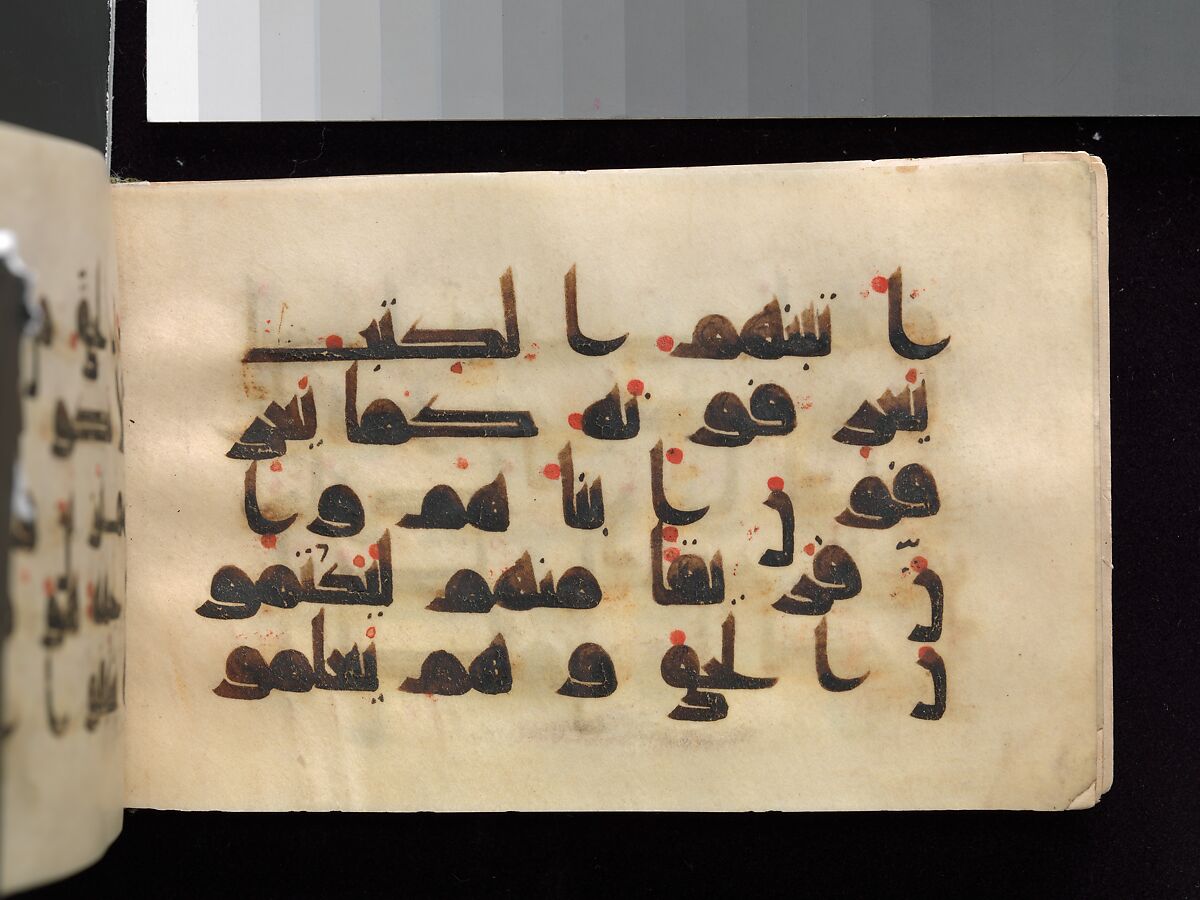 اتينهم الكتب
يعرفونه كما يعر
فون ابناهم وا
ن فريقا منهم ليكتمو
ن الحق وهم يعلمو